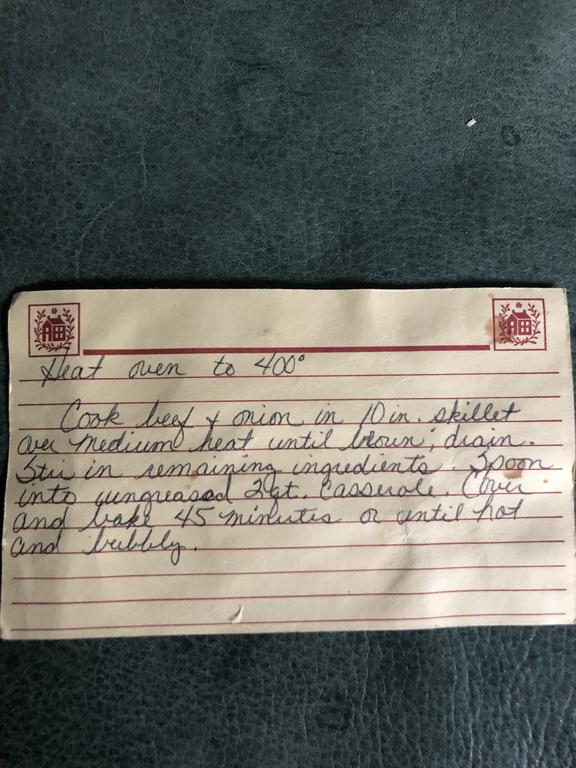 Heat oven to 400°
Cook beef & onion in 10 in. skillet
over medium heat until brown; drain.
Stir in remaining ingredients. Spoon
into ungreased 2 qt. casserole. Cover
and bake 45 minutes or until hot
and bubbly.